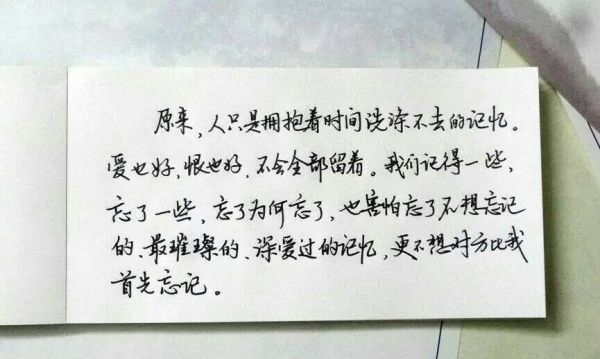 原来，人只是拥抱着时间洗涤不去的记忆。
爱也好，恨也好，不会全部留着。我们记得一些，
忘了一些，忘了为何忘了，也害怕忘了不想忘记
的、最璀璨的、深爱过的记忆，更不想对方比我
首先忘记。